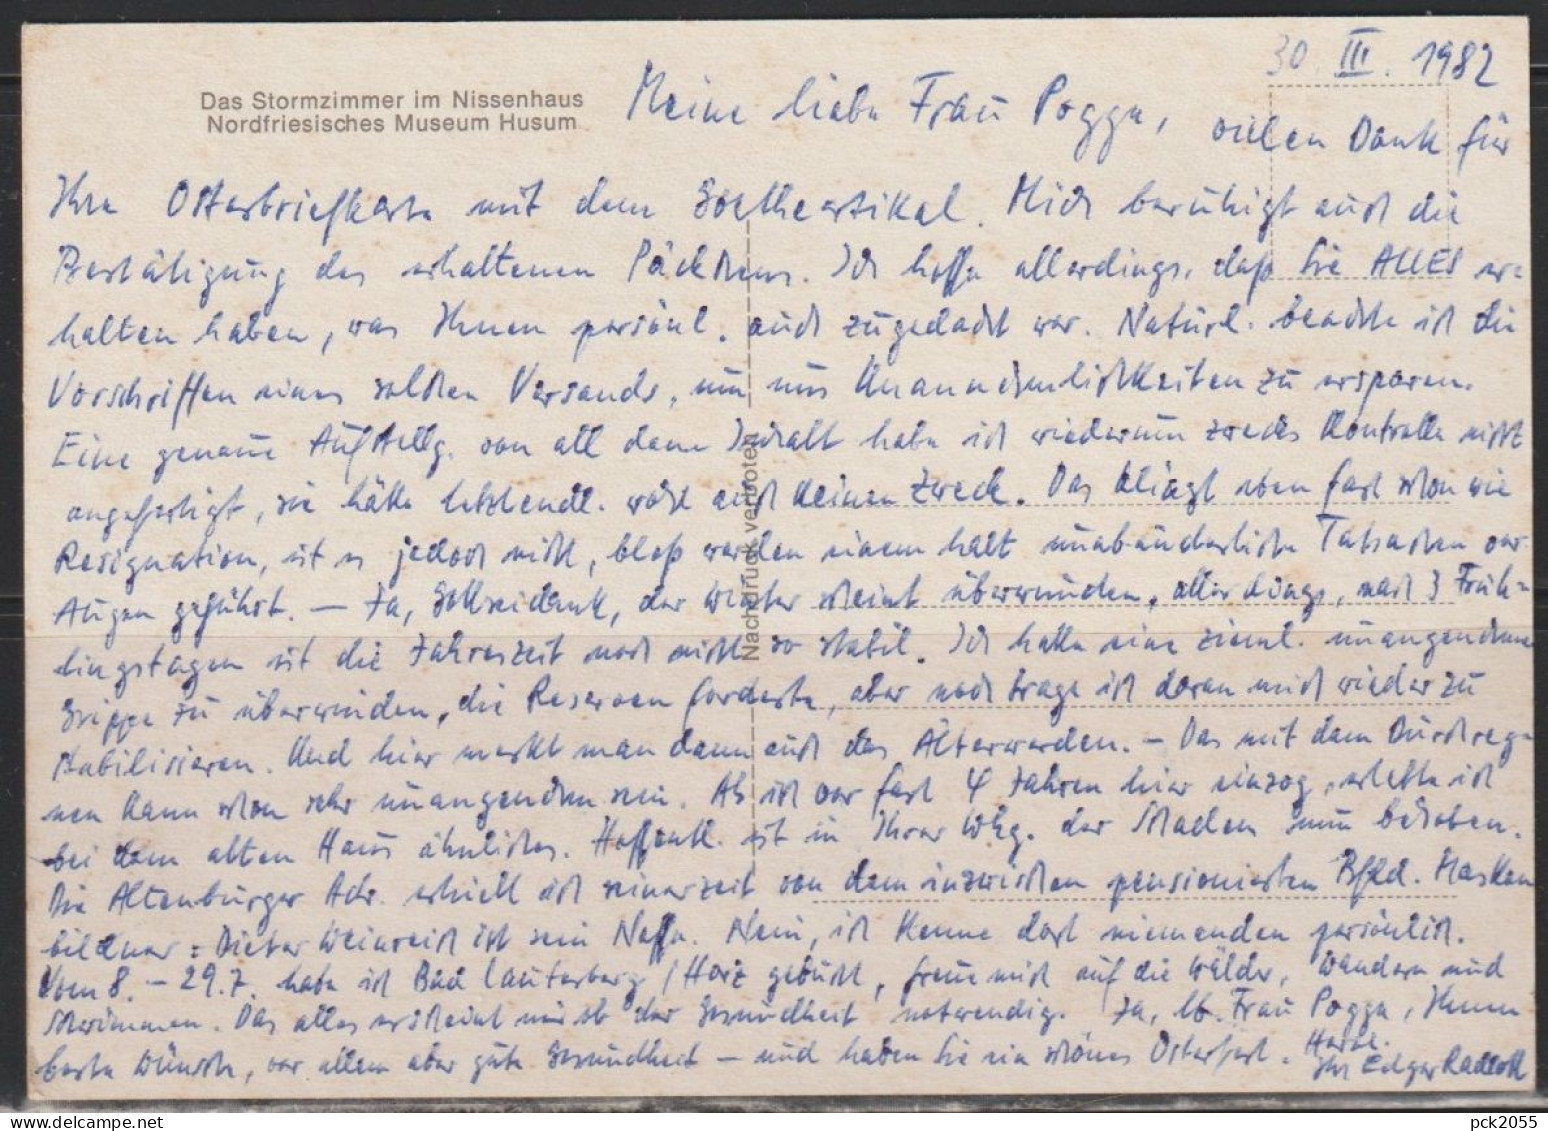 30. III. 1982
Das Stormzimmer im Nissenhaus
Nordfriesisches Museum Husum
Meine liebe Frau Pogge, vielen Dank für
Ihre Osterbriefkarte mit dem Goetheartikel. Mich beruhigt auch die
Bestätigung des erhaltenen Päckchens. Ich hoffe allerdings, daß Sie ALLES er=
halten haben, was Ihnen persönl. auch zugedacht war. Natürl. beachte ich die
Vorschriften eines solchen Versands, um uns Unannehmlichkeiten zu ersparen.
Eine genaue Aufstellg. von all dem Inhalt habe ich wiederum zwecks Kontrolle nicht
angefertigt, sie hätte letztendl. wohl auch keinen Zweck. Das klingt eben fast schon wie
Resignation, ist es jedoch nicht, bloß werden einem halt unabänderliche Tatsachen vor
Augen geführt. — Ja, Gottseidank, der Winter scheint überwunden, allerdings, nach 3 Früh=
lingstagen ist die Jahreszeit noch nicht so stabil. Ich hatte eine zieml. unangenehme
Grippe zu überwinden, die Reserven forderte, aber noch trage ich daran mich wieder zu
stabilisieren. Und hier merkt man dann auch das Älterwerden. — Das mit dem Durchreg-
nen kann schon sehr unangenehm sein. Als ich vor fast 4 Jahren hier einzog, erlebte ich
bei dem alten Haus ähnliches. Hoffentl. ist in Ihrer Whg. der Schaden nun behoben.
Die Altenburger Adr. erhielt ich seinerzeit von dem inzwischen pensionierten Masken
bildner : Dieter Weinreich ist sein Neffe. Nein, ich kenne dort niemenden persönlich.
Vom 8. – 29.7. habe ich Bad Lauterberg / Harz gebucht, freue mich auf die Wälder, Wandern und
Schwimmen. Das alles erscheint mir ob der Gesundheit notwendig. Ja, lb. Frau Pogge, Ihnen
beste Wünsche, vor allem aber gute Gesundheit — und haben Sie ein schönes Osterfest. Herzl.
Ihr Edgar
Nachdruck verboten
pck2055